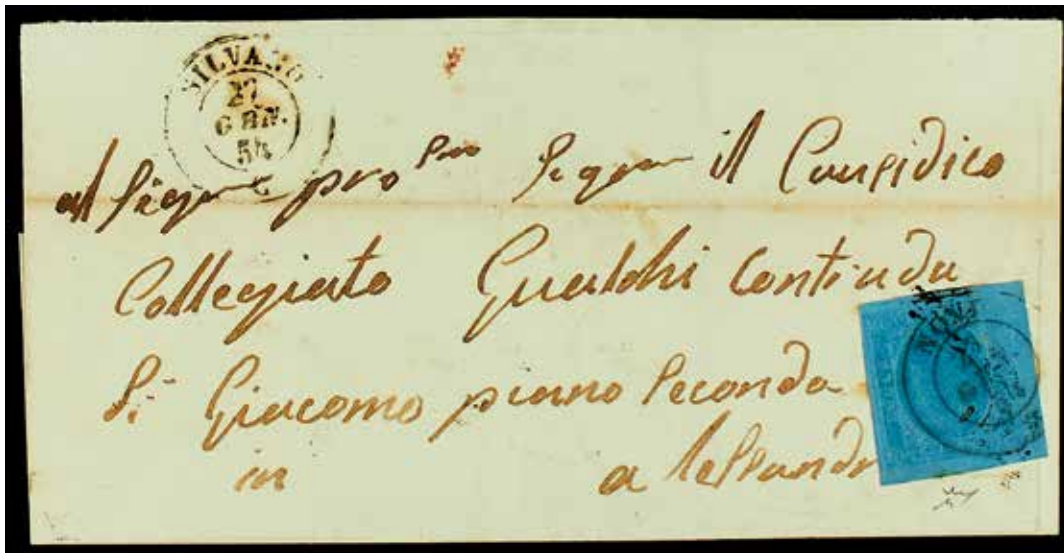 SILVANO
27
GEN.
54
al Sig.re pro Sig.re il Causidico
Collegiato Gualchi Contrada
S. Giacomo piano Secondo
in alessandr